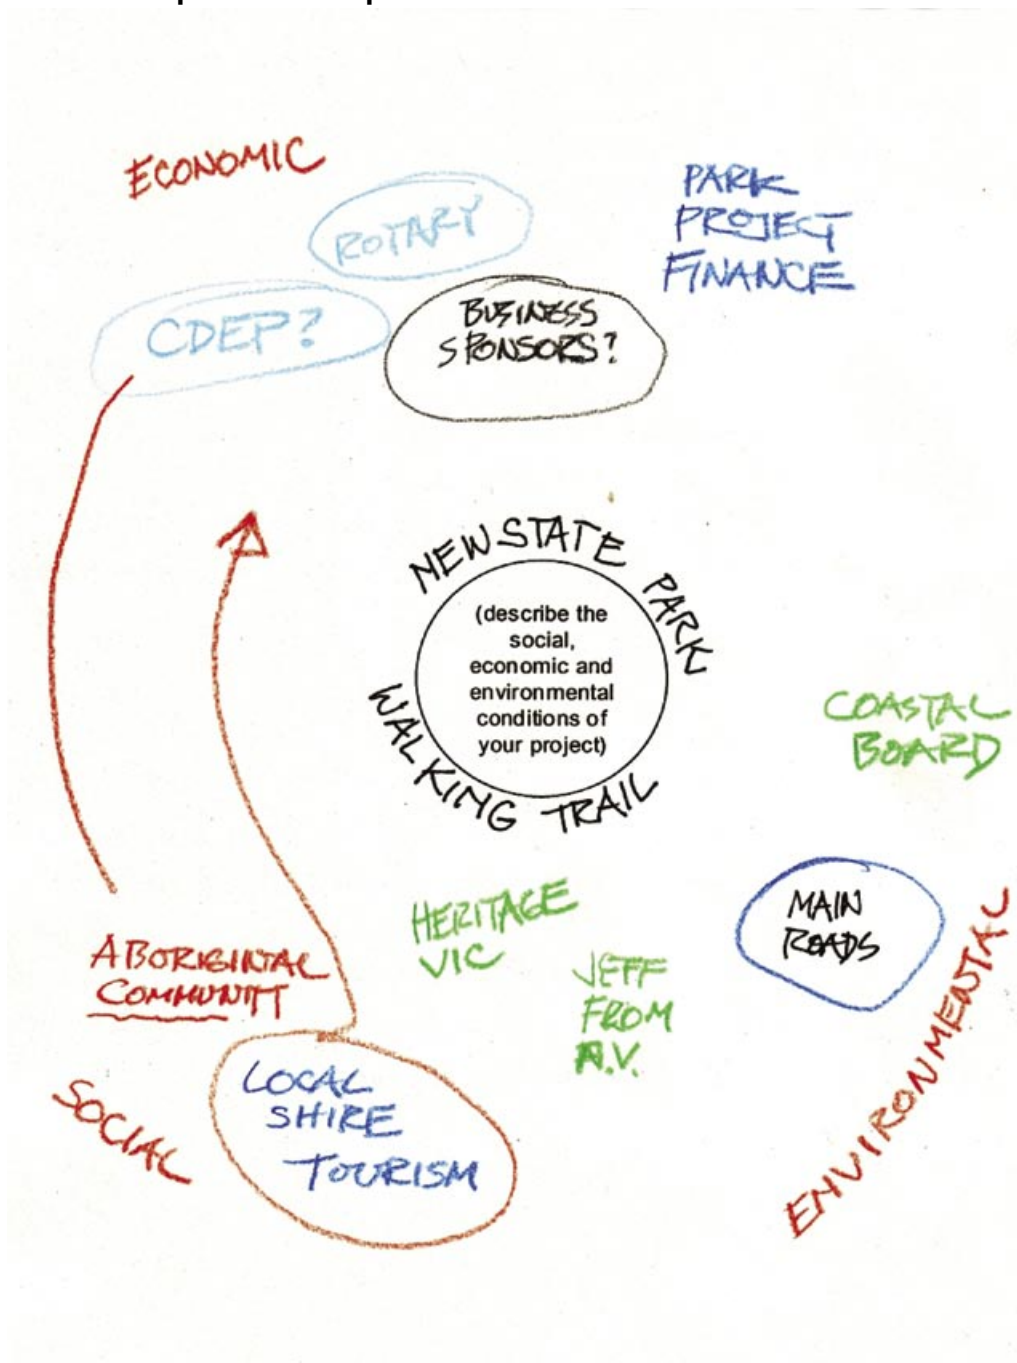 ECONOMIC
ROTARY
PARK
PROJECT
FINANCE
CDEP?
BUSINESS
SPONSORS?
NEW STATE PARK
(describe the
social,
economic and
environmental
conditions of
your project)
WALKING TRAIL
COASTAL
BOARD
HERITAGE
VIC
MAIN
ROADS
JEFF
FROM
A.V.
ABORIGINAL
COMMUNITY
ENVIRONMENTAL
SOCIAL
LOCAL
SHIRE
TOURISM